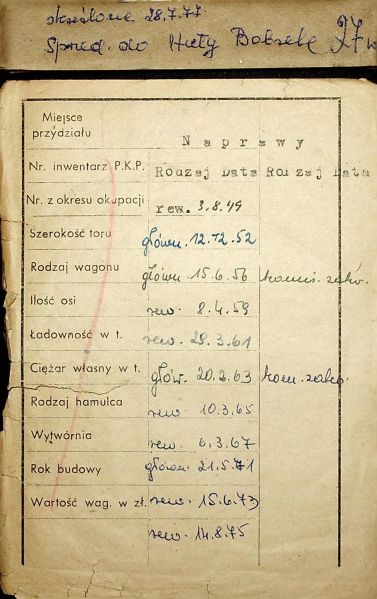 skreślono 28.7.77
Sprzed. do Huty Bobrek 27
Miejsce
przydziału
Naprawy
Nr. inwentarz P.K.P.
Rodzaj Data Rodzaj Data
Nr. z okresu okupacji
rew. 3.8.49
Szerokość toru
główn. 12.12.52
Rodzaj wagonu
główn. 15.6.56
Ilość osi
rew. 8.4.59
Ładowność w t.
rew. 29.3.61
Ciężar własny w t.
głów. 20.2.63
Rodzaj hamulca
rew. 10.3.65
Wytwórnia
rew. 6.3.67
Rok budowy
główn. 21.5.71
Wartość wag. w zł.
rew. 15.6.73
rew. 14.8.75